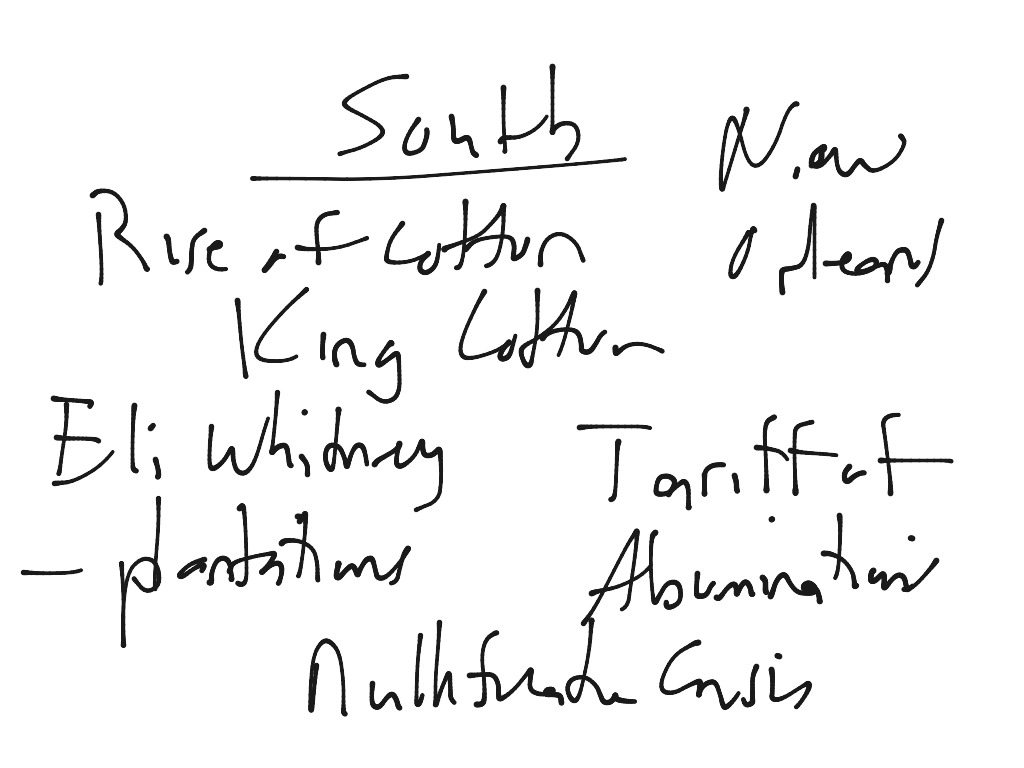 South
New
Orleans
Rise of Cotton
King Cotton
Eli Whitney
- plantations
Tariff of
Abominations
Nullification Crisis